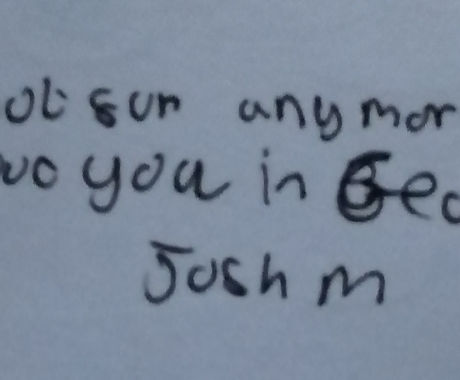 ot sun anymor
you in Geo
Josh m